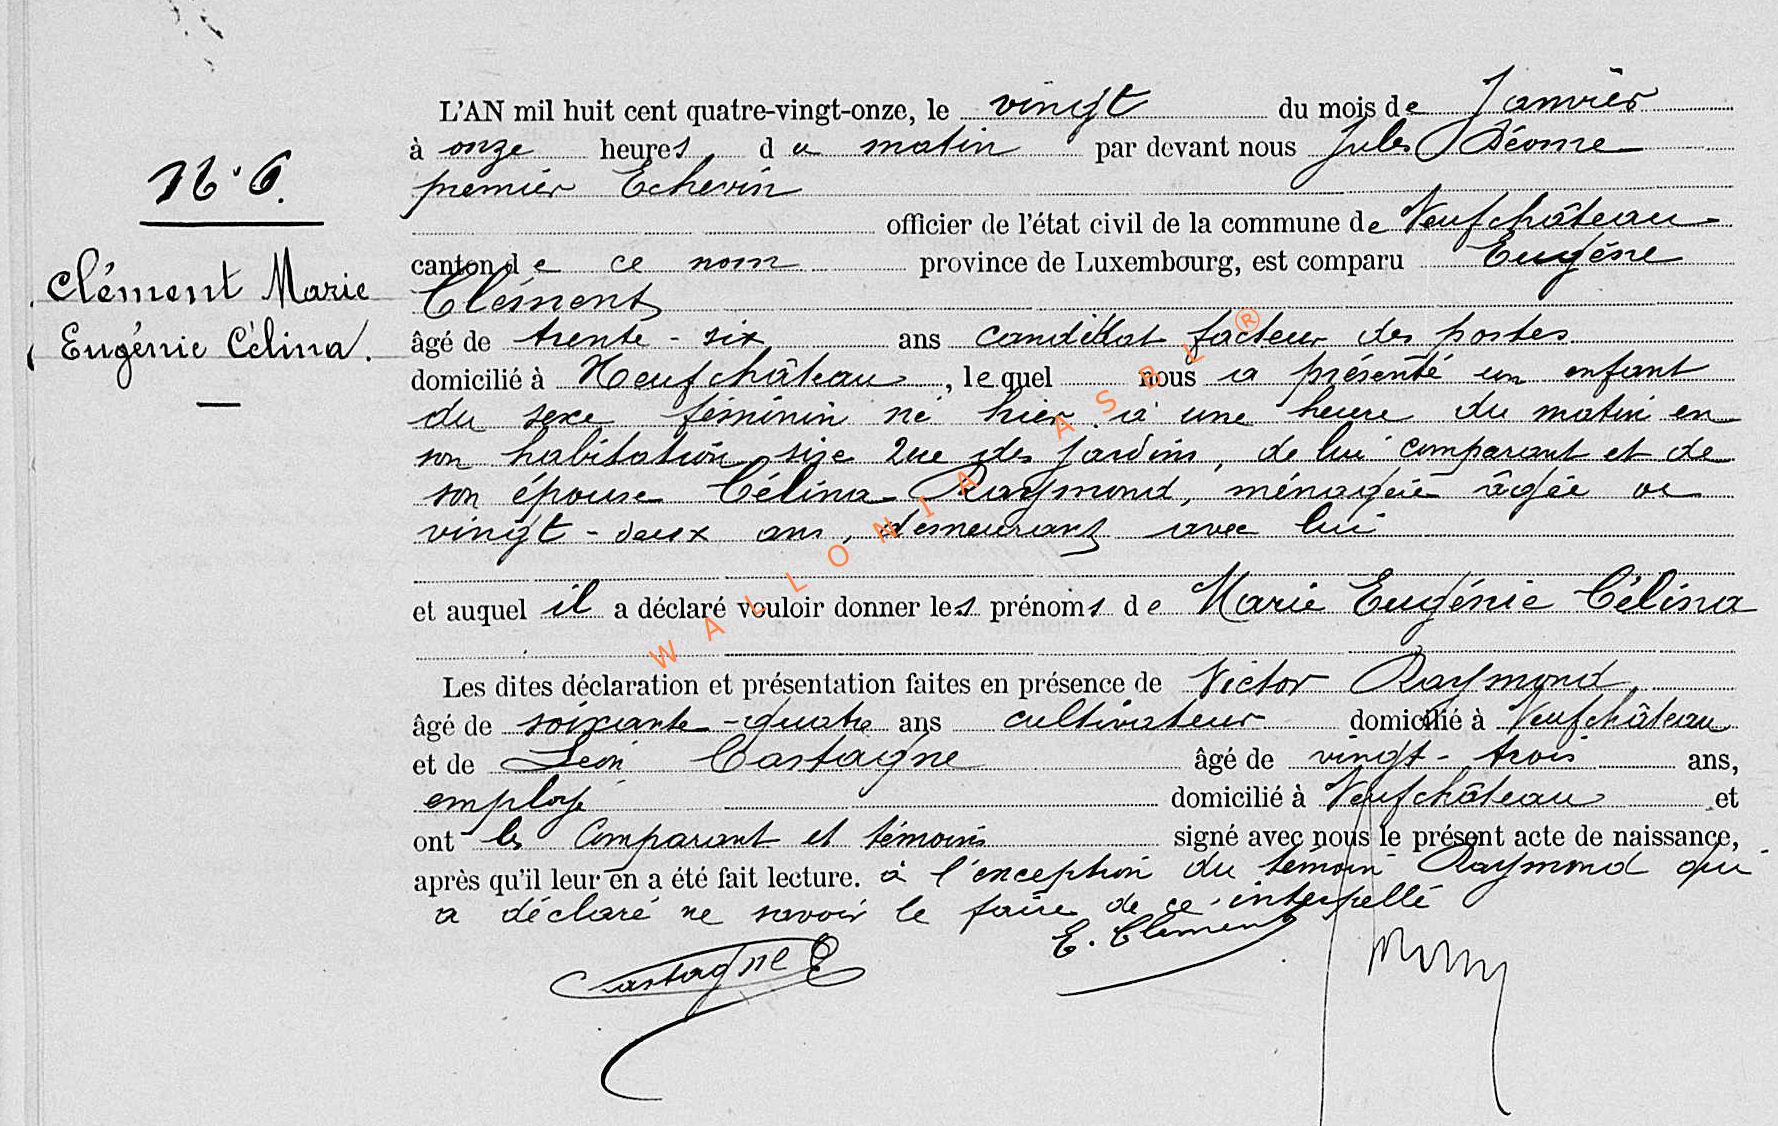 L'AN mil huit cent quatre-vingt-onze, le vingt du mois de Janvier
à onze heures du matin par devant nous Jules Déome
premier Echevin
officier de l'état civil de la commune de Neufchâteau
canton de ce nom province de Luxembourg, est comparu Eugène
Clément
âgé de trente-six ans candidat facteur des postes
domicilié à Neufchâteau, lequel nous a présenté un enfant
du sexe féminin né hier à une heure du matin en
son habitation sise rue des Jardins, de lui comparant et de
son épouse Célina Raymond, ménagère âgée de
vingt-deux ans, demeurant avec lui
et auquel il a déclaré vouloir donner les prénoms de Marie Eugénie Célina
Les dites déclaration et présentation faites en présence de Victor Raymond,
âgé de soixante-quatre ans cultivateur domicilié à Neufchâteau
et de Léon Castagne âgé de vingt-trois ans,
employé domicilié à Neufchâteau et
ont les Comparant et témoins signé avec nous le présent acte de naissance,
après qu'il leur en a été fait lecture. à l'exception du témoin Raymond qui
a déclaré ne savoir le faire de ce interpellé
E. Clement
Castagne
N° 6.
Clément Marie
Eugénie Célina.
WALLONIA ASBL ®